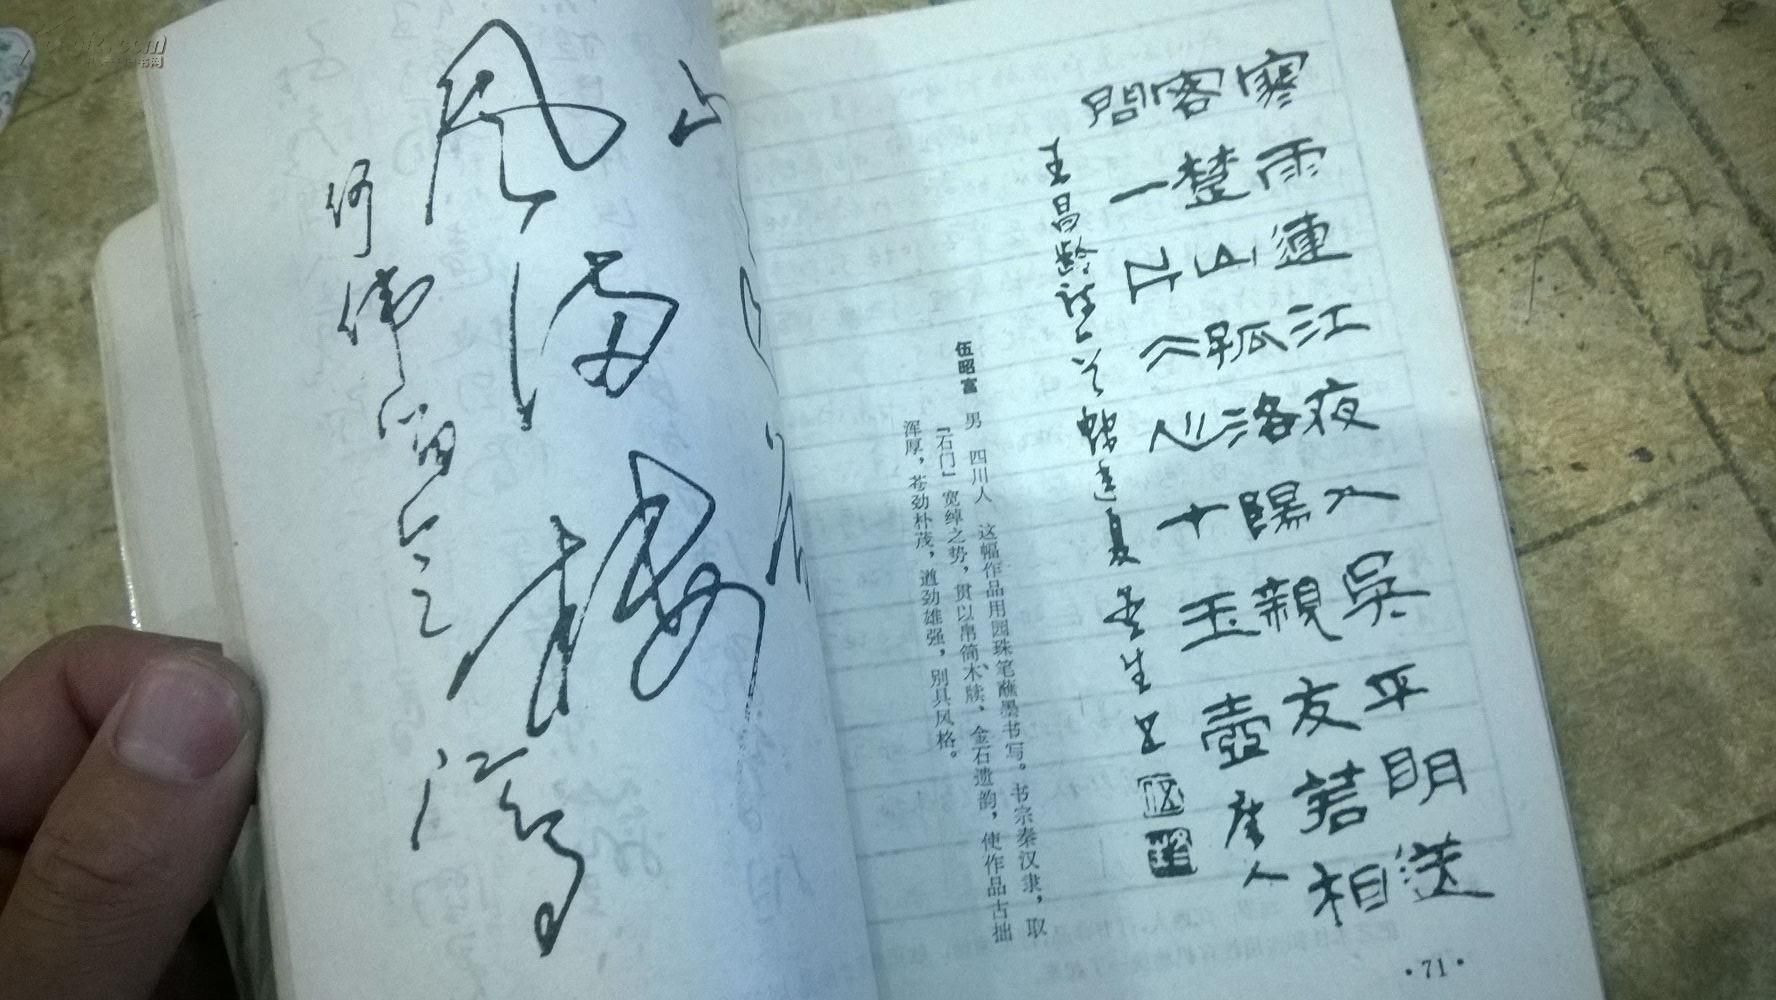 山
风满楼
何伟
寒雨連江夜入吳平明送
客楚山孤洛陽親友若相
問一片冰心在玉壺唐人
王昌龄詩一首
伍昭富 男 四川人 这幅作品用园珠笔蘸墨书写。书宗秦汉隶，取
『石门』宽绰之势，贯以帛简木牍、金石遗韵，使作品古拙
浑厚，苍劲朴茂，遒劲雄强，别具风格。
·71·